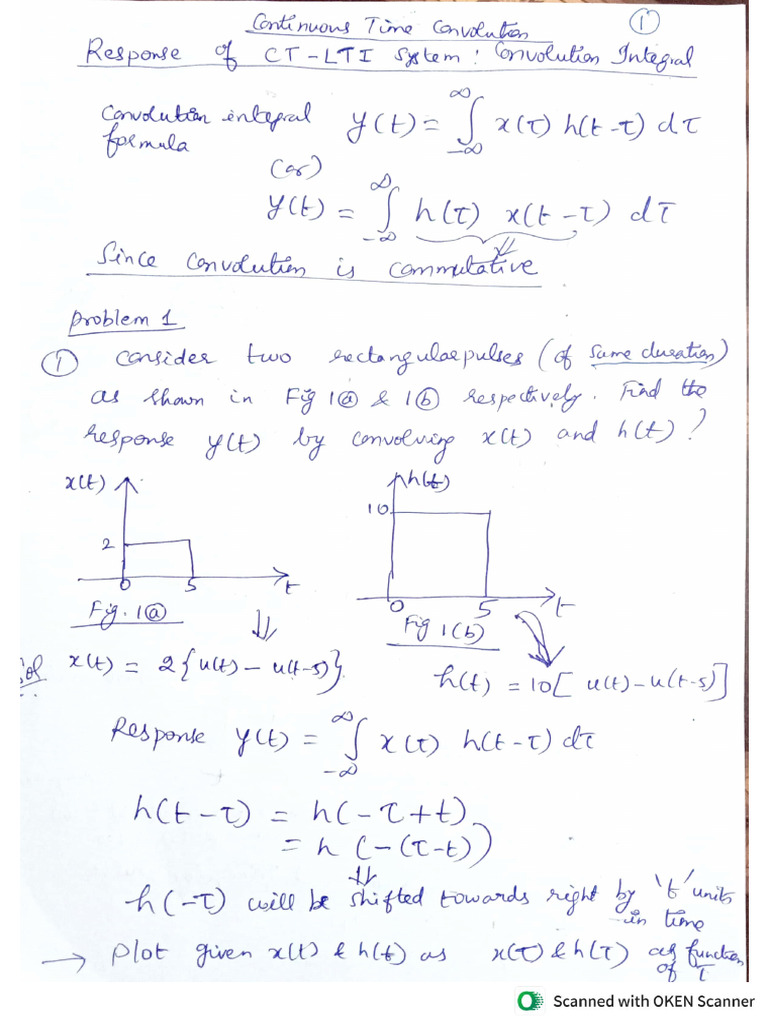 Continuous Time Convolution
①
Response of CT-LTI System: Convolution Integral
Convolution integral formula y(t) = ∫_{-∞}^{∞} x(τ) h(t-τ) dτ
(or)
y(t) = ∫_{-∞}^{∞} h(τ) x(t-τ) dτ
Since convolution is commutative
Problem 1
① Consider two rectangular pulses (of same duration)
as shown in Fig 1ⓐ & 1ⓑ respectively. Find the
response y(t) by convolving x(t) and h(t)?
x(t)
2
0 5 t
Fig. 1ⓐ
h(t)
10
0 5 t
Fig 1(b)
Sol x(t) = 2{u(t) - u(t-5)}
h(t) = 10[u(t) - u(t-5)]
Response y(t) = ∫_{-∞}^{∞} x(τ) h(t-τ) dτ
h(t-τ) = h(-τ+t)
= h(-(τ-t))
⇓
h(-τ) will be shifted towards right by 't' units
in time
→ Plot given x(t) & h(t) as x(τ) & h(τ) as function
of τ
Scanned with OKEN Scanner